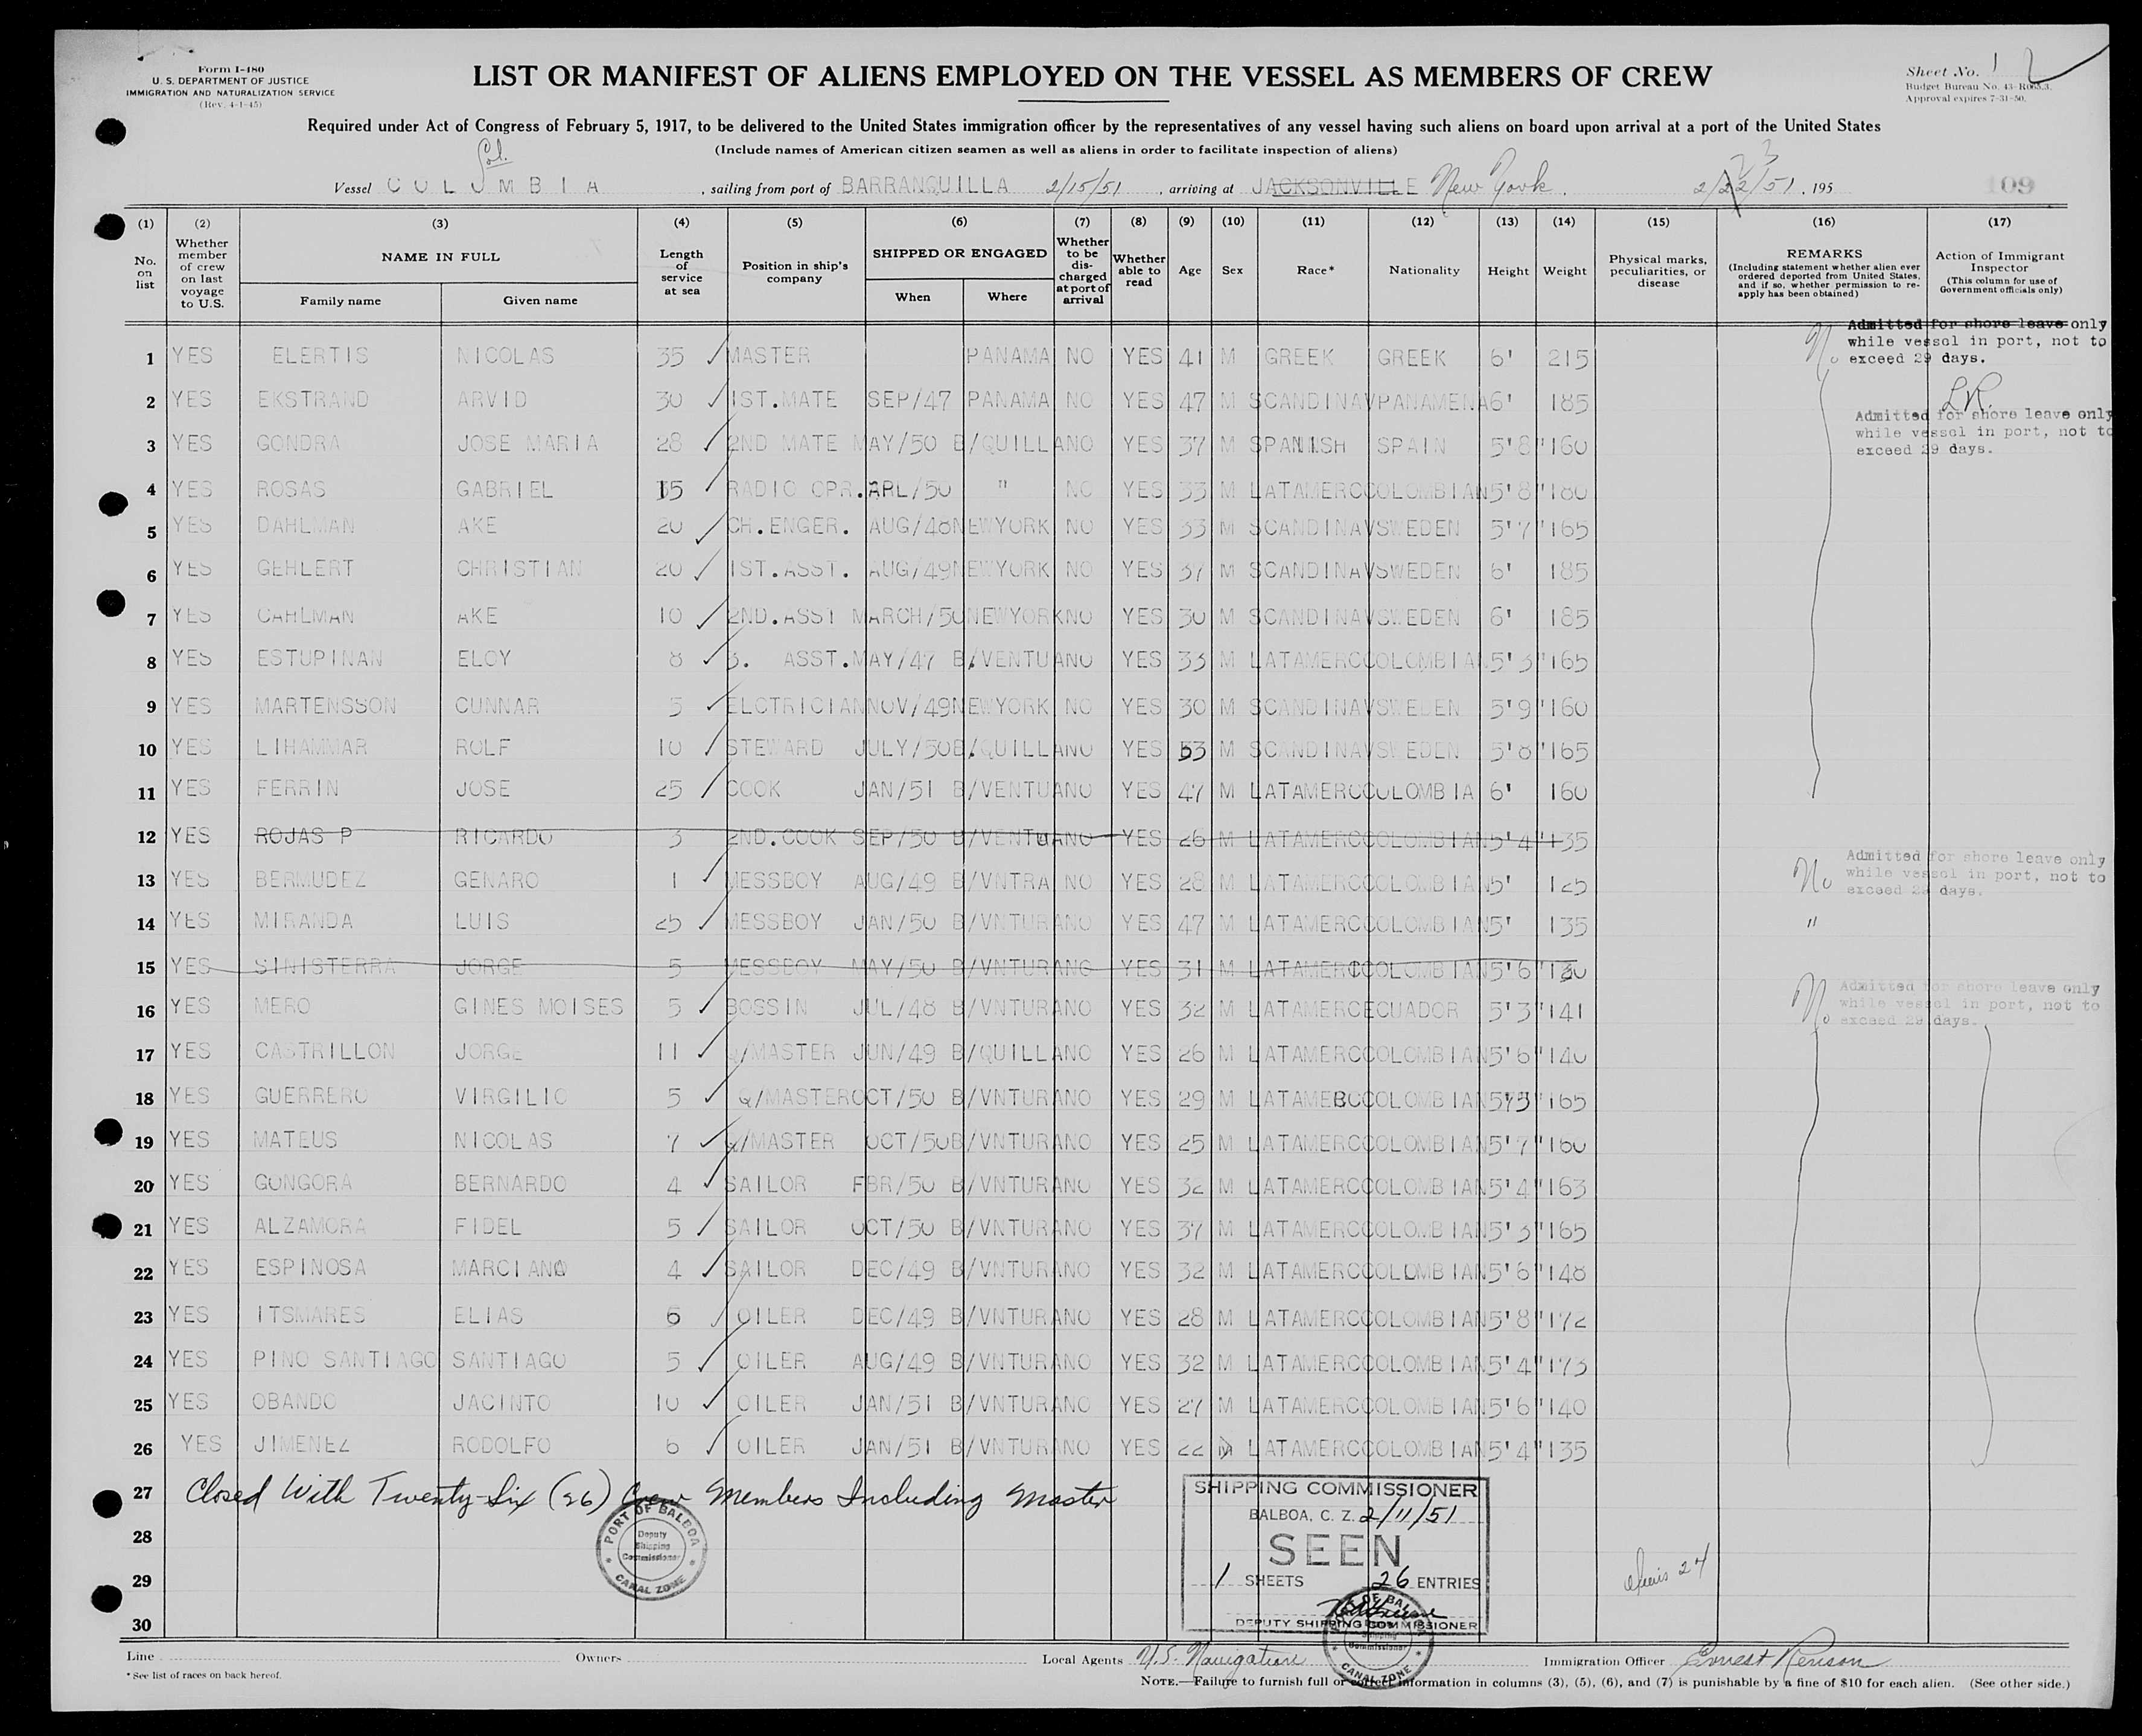 Form I-480
U. S. DEPARTMENT OF JUSTICE
IMMIGRATION AND NATURALIZATION SERVICE
(Rev. 4-1-45)
LIST OR MANIFEST OF ALIENS EMPLOYED ON THE VESSEL AS MEMBERS OF CREW
Sheet No. 1 2
Budget Bureau No. 43-R065.3.
Approval expires 7-31-50.
Required under Act of Congress of February 5, 1917, to be delivered to the United States immigration officer by the representatives of any vessel having such aliens on board upon arrival at a port of the United States
(Include names of American citizen seamen as well as aliens in order to facilitate inspection of aliens)
Col.
Vessel COLUMBIA, sailing from port of BARRANQUILLA 2/15/51, arriving at JACKSONVILLE New York. 2/22/51, 195 109
23
(1) (2) (3) (4) (5) (6) (7) (8) (9) (10) (11) (12) (13) (14) (15) (16) (17)
No. on list
Whether member of crew on last voyage to U.S.
NAME IN FULL
Family name Given name
Length of service at sea
Position in ship's company
SHIPPED OR ENGAGED
When Where
Whether to be discharged at port of arrival
Whether able to read
Age Sex Race* Nationality Height Weight
Physical marks, peculiarities, or disease
REMARKS
(Including statement whether alien ever ordered deported from United States, and if so, whether permission to reapply has been obtained)
Action of Immigrant Inspector
(This column for use of Government officials only)
Admitted for shore leave only
while vessel in port, not to
exceed 29 days.
1 YES ELERTIS NICOLAS 35 MASTER PANAMA NO YES 41 M GREEK GREEK 6' 215 No
2 YES EKSTRAND ARVID 30 1ST.MATE SEP/47 PANAMA NO YES 47 M SCANDINAV PANAMENA 6' 185
LR.
Admitted for shore leave only
while vessel in port, not to
exceed 29 days.
3 YES GONDRA JOSE MARIA 28 2ND MATE MAY/50 B/QUILLA NO YES 37 M SPANISH SPAIN 5'8" 160
4 YES ROSAS GABRIEL 15 RADIO OPR. APL/50 " NO YES 33 M LATAMERC COLOMBIAN 5'8" 180
5 YES DAHLMAN AKE 20 CH.ENGER. AUG/48 NEWYORK NO YES 33 M SCANDINAV SWEDEN 5'7" 165
6 YES GEHLERT CHRISTIAN 20 1ST.ASST. AUG/49 NEWYORK NO YES 37 M SCANDINAV SWEDEN 6' 185
7 YES CAHLMAN AKE 10 2ND.ASST MARCH/50 NEWYORK NO YES 30 M SCANDINAV SWEDEN 6' 185
8 YES ESTUPINAN ELOY 8 3. ASST. MAY/47 B/VENTURA NO YES 33 M LATAMERC COLOMBIAN 5'3" 165
9 YES MARTENSSON CUNNAR 5 ELCTRICIAN NOV/49 NEWYORK NO YES 30 M SCANDINAV SWEDEN 5'9" 160
10 YES LIHAMMAR ROLF 10 STEWARD JULY/50 B/QUILLA NO YES 53 M SCANDINAV SWEDEN 5'8" 165
11 YES FERRIN JOSE 25 COOK JAN/51 B/VENTUA NO YES 47 M LATAMERC COLOMBIA 6' 160
12 YES ROJAS P RICARDO 3 2ND.COOK SEP/50 B/VENTUA NO YES 26 M LATAMERC COLOMBIAN 5'4" 135
Admitted for shore leave only
while vessel in port, not to
exceed 29 days.
13 YES BERMUDEZ GENARO 1 MESSBOY AUG/49 B/VNTRA NO YES 28 M LATAMERC COLOMBIAN 5' 125 No
14 YES MIRANDA LUIS 25 MESSBOY JAN/50 B/VNTURA NO YES 47 M LATAMERC COLOMBIAN 5' 135 "
15 YES SINISTERRA JORGE 5 MESSBOY MAY/50 B/VNTURA NO YES 31 M LATAMERC COLOMBIAN 5'6" 130
Admitted for shore leave only
while vessel in port, not to
exceed 29 days.
16 YES MERO GINES MOISES 5 BOSSIN JUL/48 B/VNTURA NO YES 32 M LATAMERC ECUADOR 5'3" 141 No
17 YES CASTRILLON JORGE 11 Q/MASTER JUN/49 B/QUILLA NO YES 26 M LATAMERC COLOMBIAN 5'6" 140
18 YES GUERRERO VIRGILIO 5 Q/MASTER OCT/50 B/VNTURA NO YES 29 M LATAMERC COLOMBIAN 5'3" 165
19 YES MATEUS NICOLAS 7 Q/MASTER OCT/50 B/VNTURA NO YES 25 M LATAMERC COLOMBIAN 5'7" 160
20 YES GONGORA BERNARDO 4 SAILOR FBR/50 B/VNTURA NO YES 32 M LATAMERC COLOMBIAN 5'4" 163
21 YES ALZAMORA FIDEL 5 SAILOR OCT/50 B/VNTURA NO YES 37 M LATAMERC COLOMBIAN 5'3" 165
22 YES ESPINOSA MARCIANO 4 SAILOR DEC/49 B/VNTURA NO YES 32 M LATAMERC COLOMBIAN 5'6" 148
23 YES ITSMARES ELIAS 6 OILER DEC/49 B/VNTURA NO YES 28 M LATAMERC COLOMBIAN 5'8" 172
24 YES PINO SANTIAGO SANTIAGO 5 OILER AUG/49 B/VNTURA NO YES 32 M LATAMERC COLOMBIAN 5'4" 173
25 YES OBANDO JACINTO 10 OILER JAN/51 B/VNTURA NO YES 27 M LATAMERC COLOMBIAN 5'6" 140
26 YES JIMENEZ RODOLFO 6 OILER JAN/51 B/VNTURA NO YES 22 M LATAMERC COLOMBIAN 5'4" 135
27 Closed With Twenty-Six (26) Crew Members Including Master
28
29
30
PORT OF BALBOA
Deputy Shipping Commissioner
CANAL ZONE
SHIPPING COMMISSIONER
BALBOA, C. Z. 2/11/51
SEEN
1 SHEETS 26 ENTRIES
DEPUTY SHIPPING COMMISSIONER
PORT OF BALBOA
CANAL ZONE
24
Line Owners Local Agents U.S. Navigation Immigration Officer Ernest Renison
* See list of races on back hereof.
NOTE.—Failure to furnish full or correct information in columns (3), (5), (6), and (7) is punishable by a fine of $10 for each alien. (See other side.)